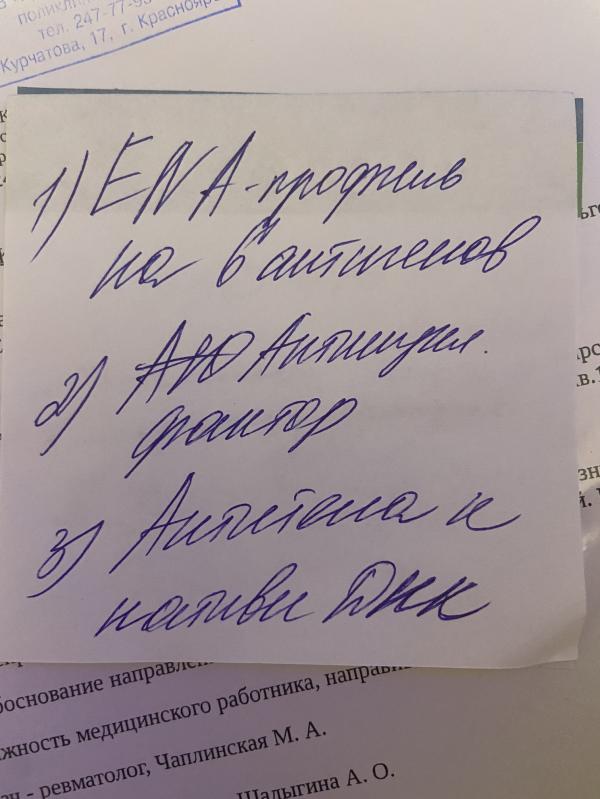 поликлин
тел. 247-77-9
Курчатова, 17, г. Красноярс
1) ENA-профиль
на 6 антигенов
2) АЮ Антинукл.
фактор
3) Антитела к
нативн ДНК
боснование направлен
жность медицинского работника, направи
ач - ревматолог, Чаплинская М. А.
Шадыгина А. О.